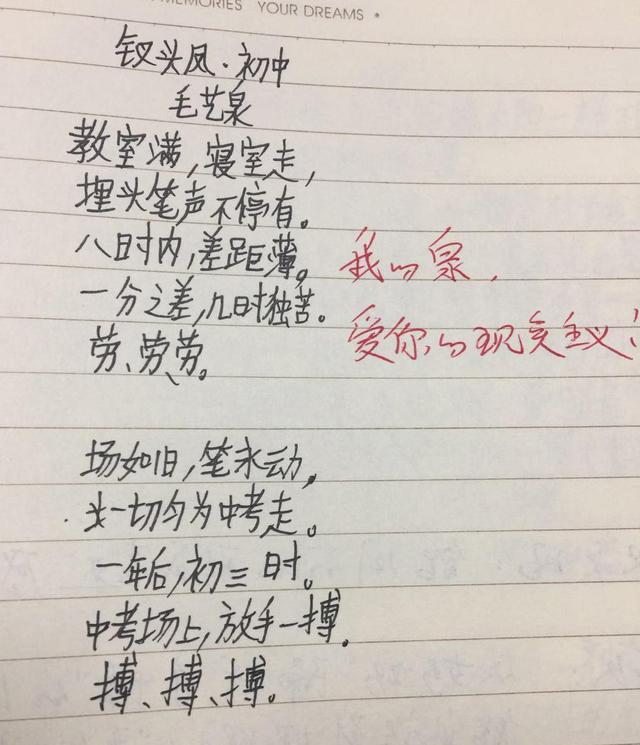 MEMORIES YOUR DREAMS
钗头凤·初中
毛艺泉
教室满，寝室走，
埋头笔声不停有。
八日时内，差距薄。
一分之差，几时独苦。
劳、劳、劳。
我的泉，
爱你的现实主义！
场如旧，笔永动，
一切匀为中考走。
一年后，初三时。
中考场上，放手一搏。
搏、搏、搏。